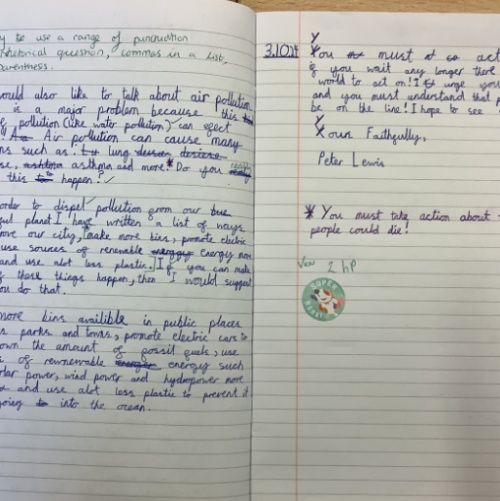 y to use a range of punctuation
rhetorical question, commas in a list,
parenthesis.
would also like to talk about air pollution
is a major problem because this
pollution (like water pollution) can effect
" Air pollution can cause many
ns such as: lung
se, asthma and more* Do you really
this happen?
order to dispel pollution from our blue
ful planet I have written a list of ways
ove our city, make more bins, promote electric
use sources of renewable energy more
and use alot less plastic. If you can make
f these things happen, then I would suggest
you do that.
more bins availible in public places
s parks and towns, promote electric cars to
own the amount of fossil fuels, use
s of rewnewable energy such
olar power, wind power and hydropower more
and use alot less plastic to prevent it
going into the ocean.
3.10.
You must act
if you wait any longer there
world to act on! I urge you
and you must understand that
be on the line! I hope to see
Yours Faithfully,
Peter Lewis
* You must take action about
people could die!
2 hP
SUPER